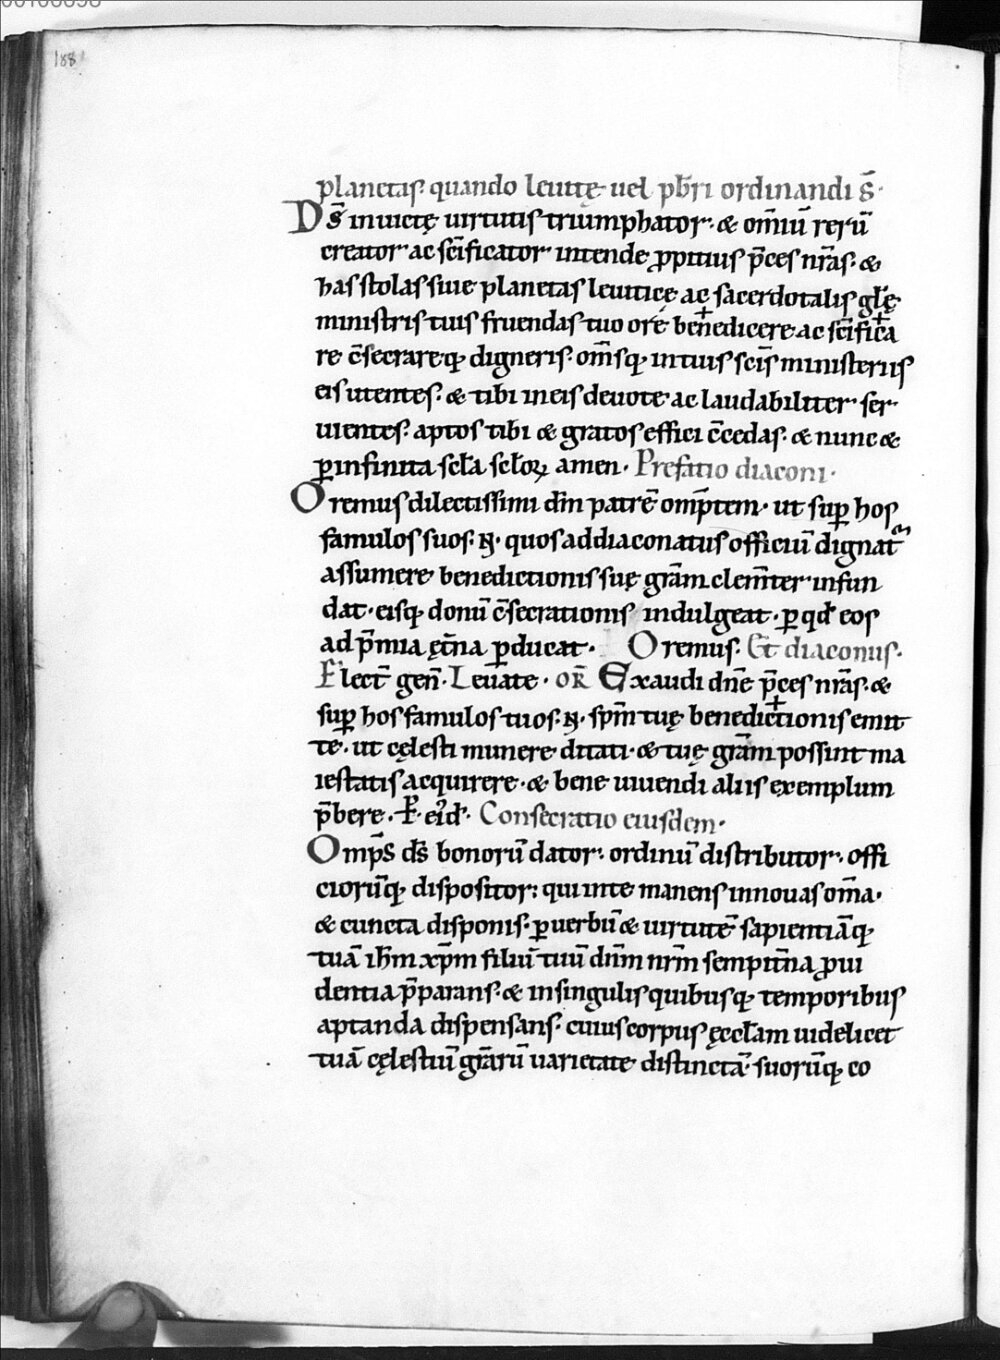 188
planetas. quando leuitę uel pb̅ri ordinandi s̅.
Ds̅ inuictę uirtutis triumphator. & om̅iu̅ reru̅
creator ac sc̅ificator intende ꝓpitius p̅ces nr̅as. &
has stolas siue planetas leuiticę ac sacerdotalis gl̅ę
ministris tuis fruendas tuo ore bene+dicere ac sc̅ifi+ca
re c̅secrareq; digneris. om̅sq; in tuis sc̅is ministeriis
eis utentes. & tibi in eis deuote ac laudabiliter ser
uientes. aptos tibi & gratos effici c̅cedas. & nunc &
ꝑ infinita scl̅a scl̅oꝝ amen. Prefatio diaconi.
Oremus dilectissimi dm̅ patre̅ omp̅tem. ut suꝑ hos
famulos suos. N. quos ad diaconatus officiu̅ dignat᷑
assumere benedictionis suę gr̅am clem̅ter infun
dat. eisq; donu̅ c̅secrationis indulgeat. ꝑ qd̅ eos
ad p̅mia ęt̅na ꝑducat. Oremus. Et diaconus.
Flect̅ gen̅. Leuate. or̅ Exaudi dn̅e p̅ces nr̅as. &
suꝑ hos famulos tuos. N. spm̅ tuę benedic+tionis emit
te. ut cęlesti munere ditati. & tuę gr̅am possint ma
iestatis acquirere. & bene uiuendi aliis exemplum
p̅bere. P. eid̅. Consecratio eiusdem.
Omp̅s ds̅ bonoru̅ dator. ordinu̅ distributor. offi
cioru̅q; dispositor: qui in te manens innouas om̅a.
& cuncta disponis. ꝑ uerbu̅ & uirtute̅ sapientia̅q;
tua̅ ih̅m xp̅m filiu̅ tuu̅ dn̅m nr̅m sempit̅na ꝓui
dentia p̅parans. & in singulis quibusq; temporibus
aptanda dispensans. cuius corpus ęccl̅am uidelicet
tua̅ cęlestiu̅ gr̅aru̅ uarietate distincta̅. suoru̅q; co